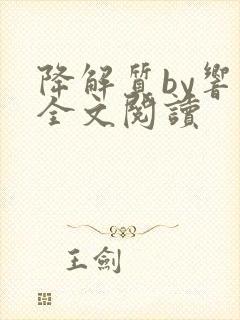 降解質by響
全文閱讀
王劍